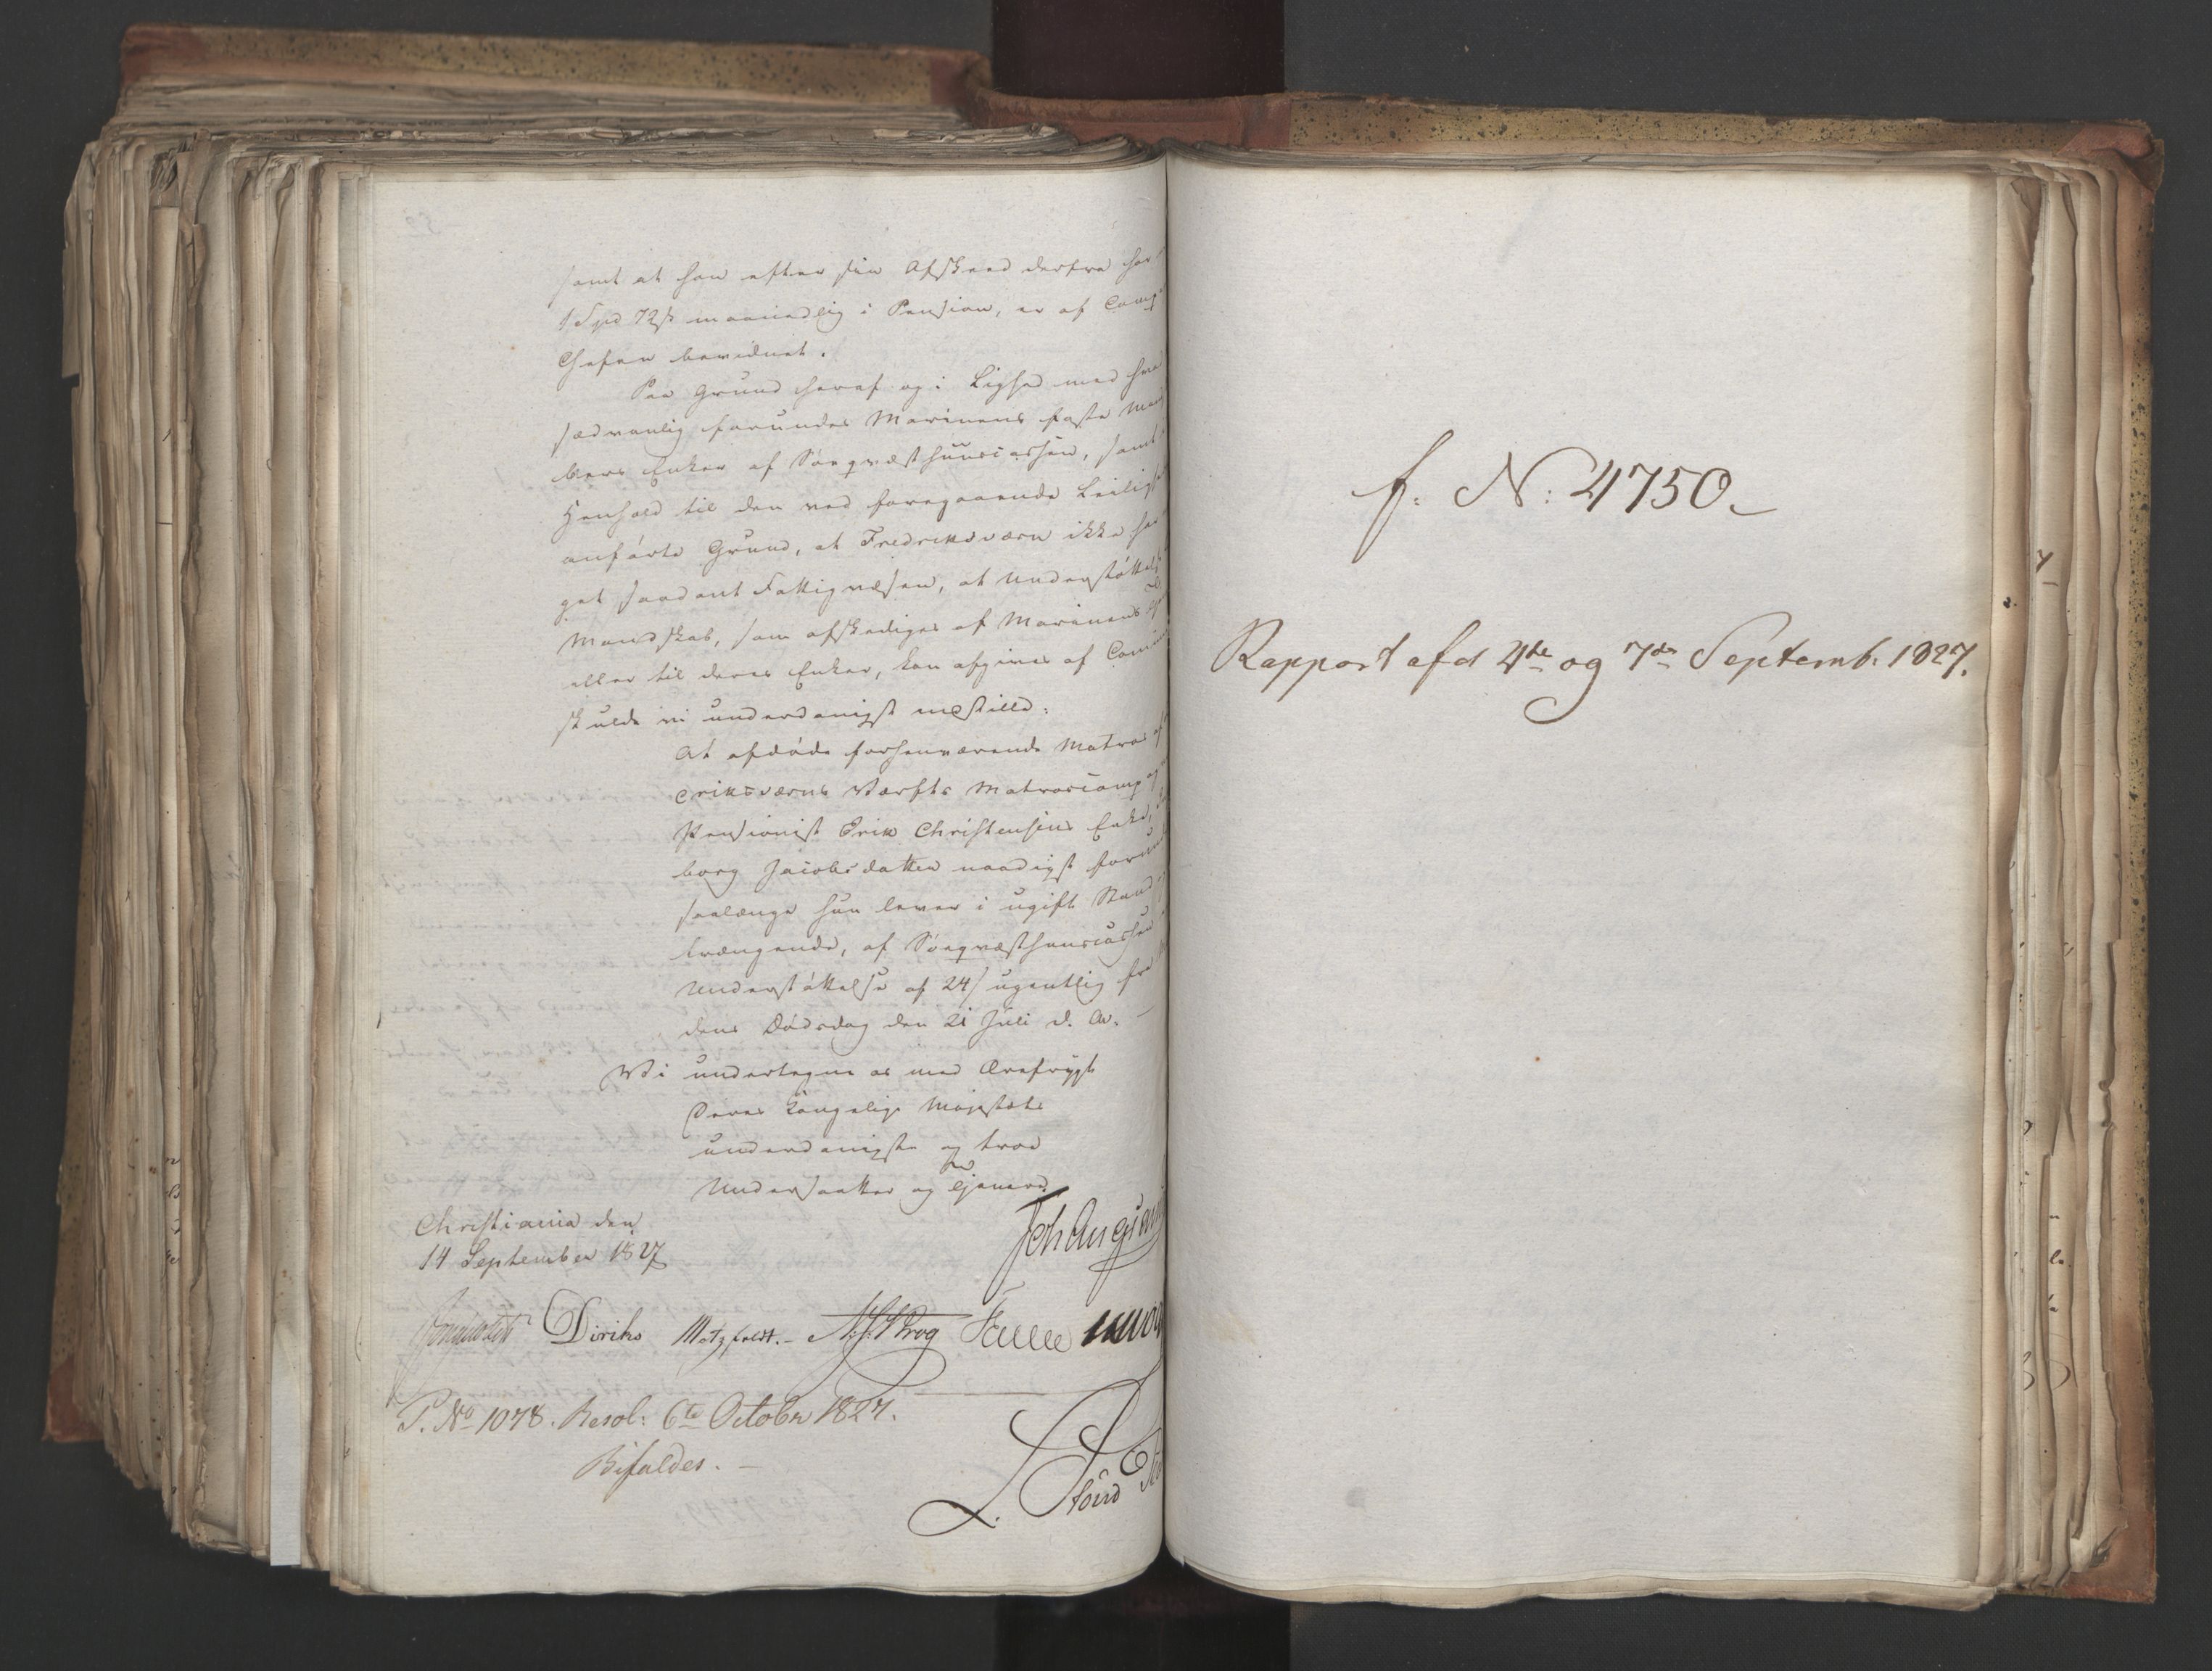 samt at han efter sin Afskeed derfra har
1 Spd 72 s maanedlig i Pension, er af Comp
Chefen bevidnet.
Paa Grund heraf og i Lighed med hva
sædvanlig forundes Marinens faste Mand
bers Enker af Søeqvæsthuuscassen, samt
Henhold til den ved foregaaende Leilig
anførte Grund, at Fredriksværn ikke ha
get saadant Fattigvæsen, at Understøttel
Mandskab, som afskediges af Marinens
eller til deres Enker, kan afgives af Com
skulde vi underdanigst indstille:
At afdøde forhenværende Matros af
eriksværns Værfts Matroscomp og
Pensionist Erik Christensens Enke,
borg Jacobsdatter naadigst forun
saalænge hun lever i ugift Stand
trængende, af Søeqvæsthuuscassen
Understøttelse af 24 s ugentlig fra
dens Dødsdag den 21 Juli d. A.
Vi undertegne os med Ærefrygt
Deres Kongelige Majestæts
underdanigste og troe
Undersaatter og Tjenere
Christiania den
14 September 1827
Diriks Motzfeldt. Krog
P. No 1078. Resol: 6te October 1827.
Bifaldes.
f. N: 4750
Rapport af d 4de og 7de Septemb. 1827.